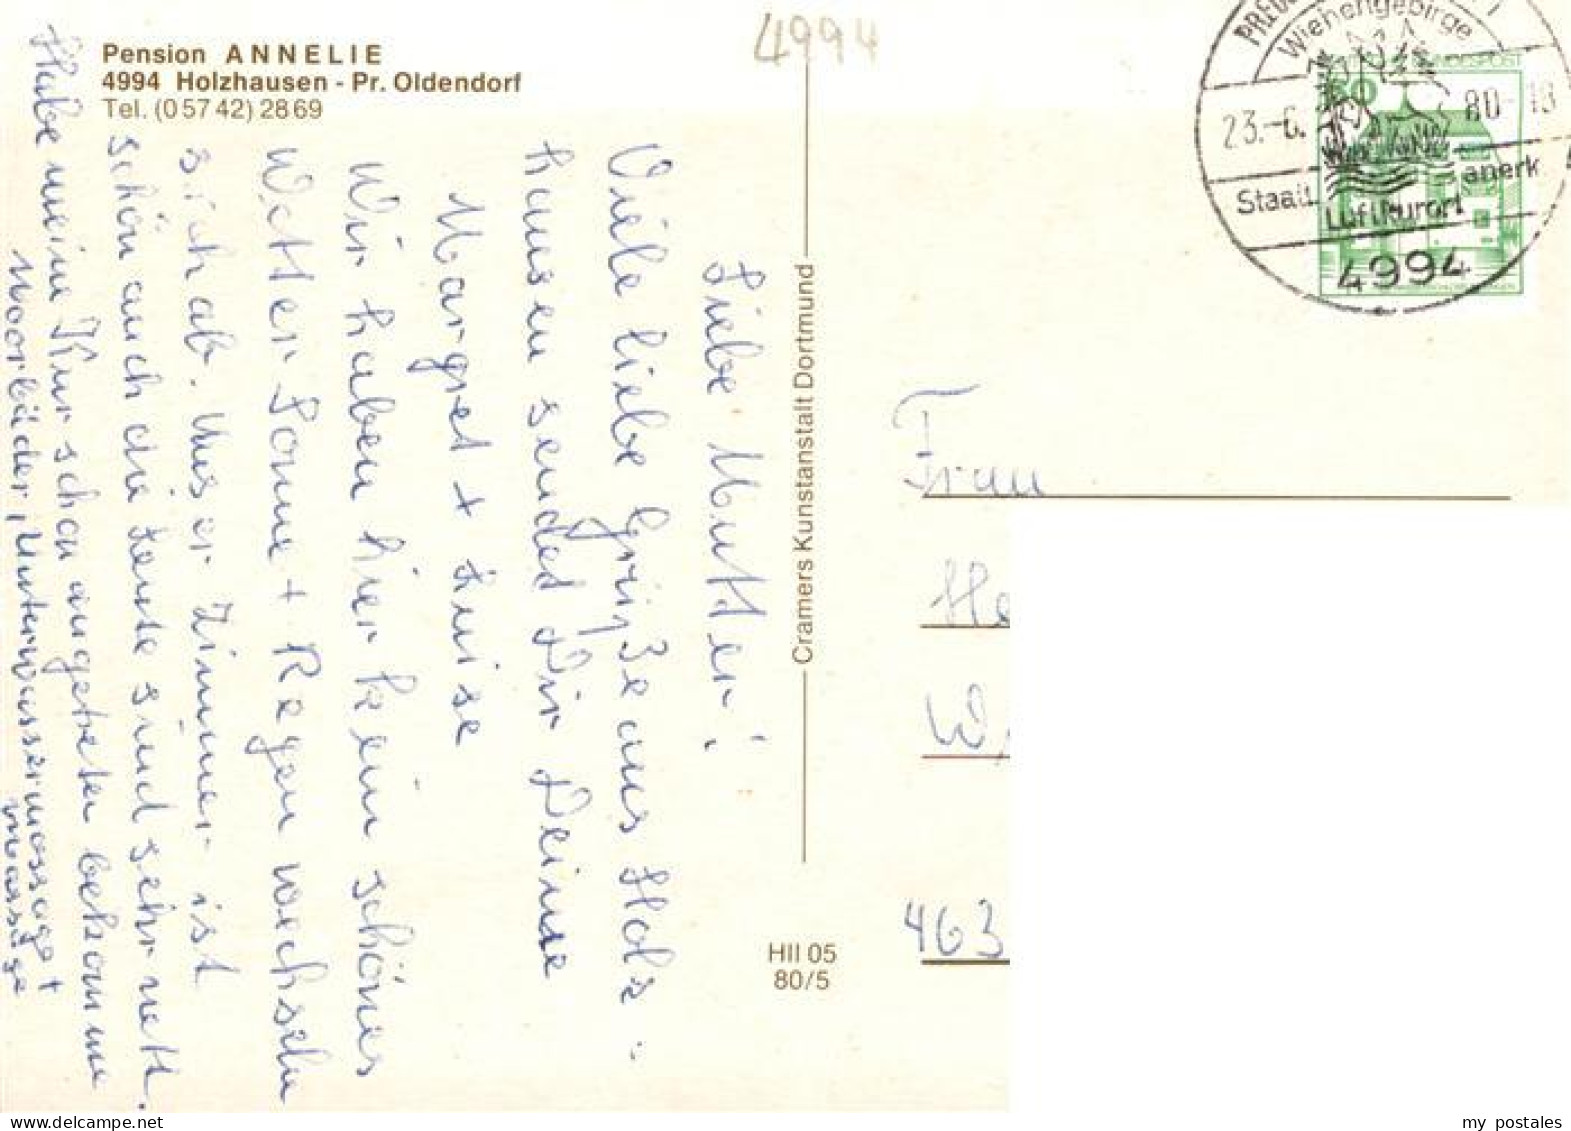 Pension ANNELIE
4994 Holzhausen - Pr. Oldendorf
Tel. (0 57 42) 28 69
4994
Liebe Mutter!
Viele liebe Grüße aus Holz-
hausen sendet Dir Deine
Margret + Luise
Wir haben hier kein schönes
Wetter Sonne + Regen wechseln
sich ab. Unser Zimmer ist
schön auch die Leute sind sehr nett.
Habe meine Kur schon angetreten bekomme
Moorbäder, Unterwassermassage +
massage
Cramers Kunstanstalt Dortmund
HII 05
80/5
Wiehengebirge
23.-6. 80-18
Staatl. anerk.
Luftkurort
4994
60
Frau
He
W
463
my_postales